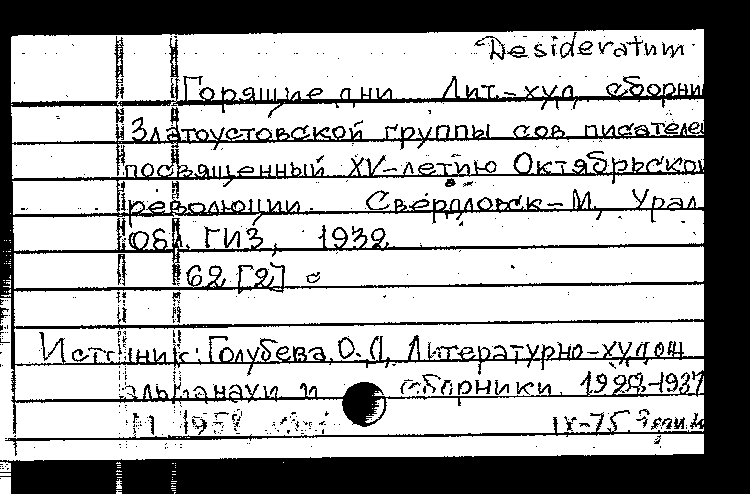 Desideratum
Горящие дни Лит.-худ. сборни
Златоустовской группы сов писателе
посвященный XV-летию Октябрьско
революции. Свердловск-М, Урал.
Обл. ГИЗ, 1932
62 [2] с
Источник: Голубева, О.Д, Литературно-худож
альманахи и сборники. 1928-1937
М 1958 IX-75